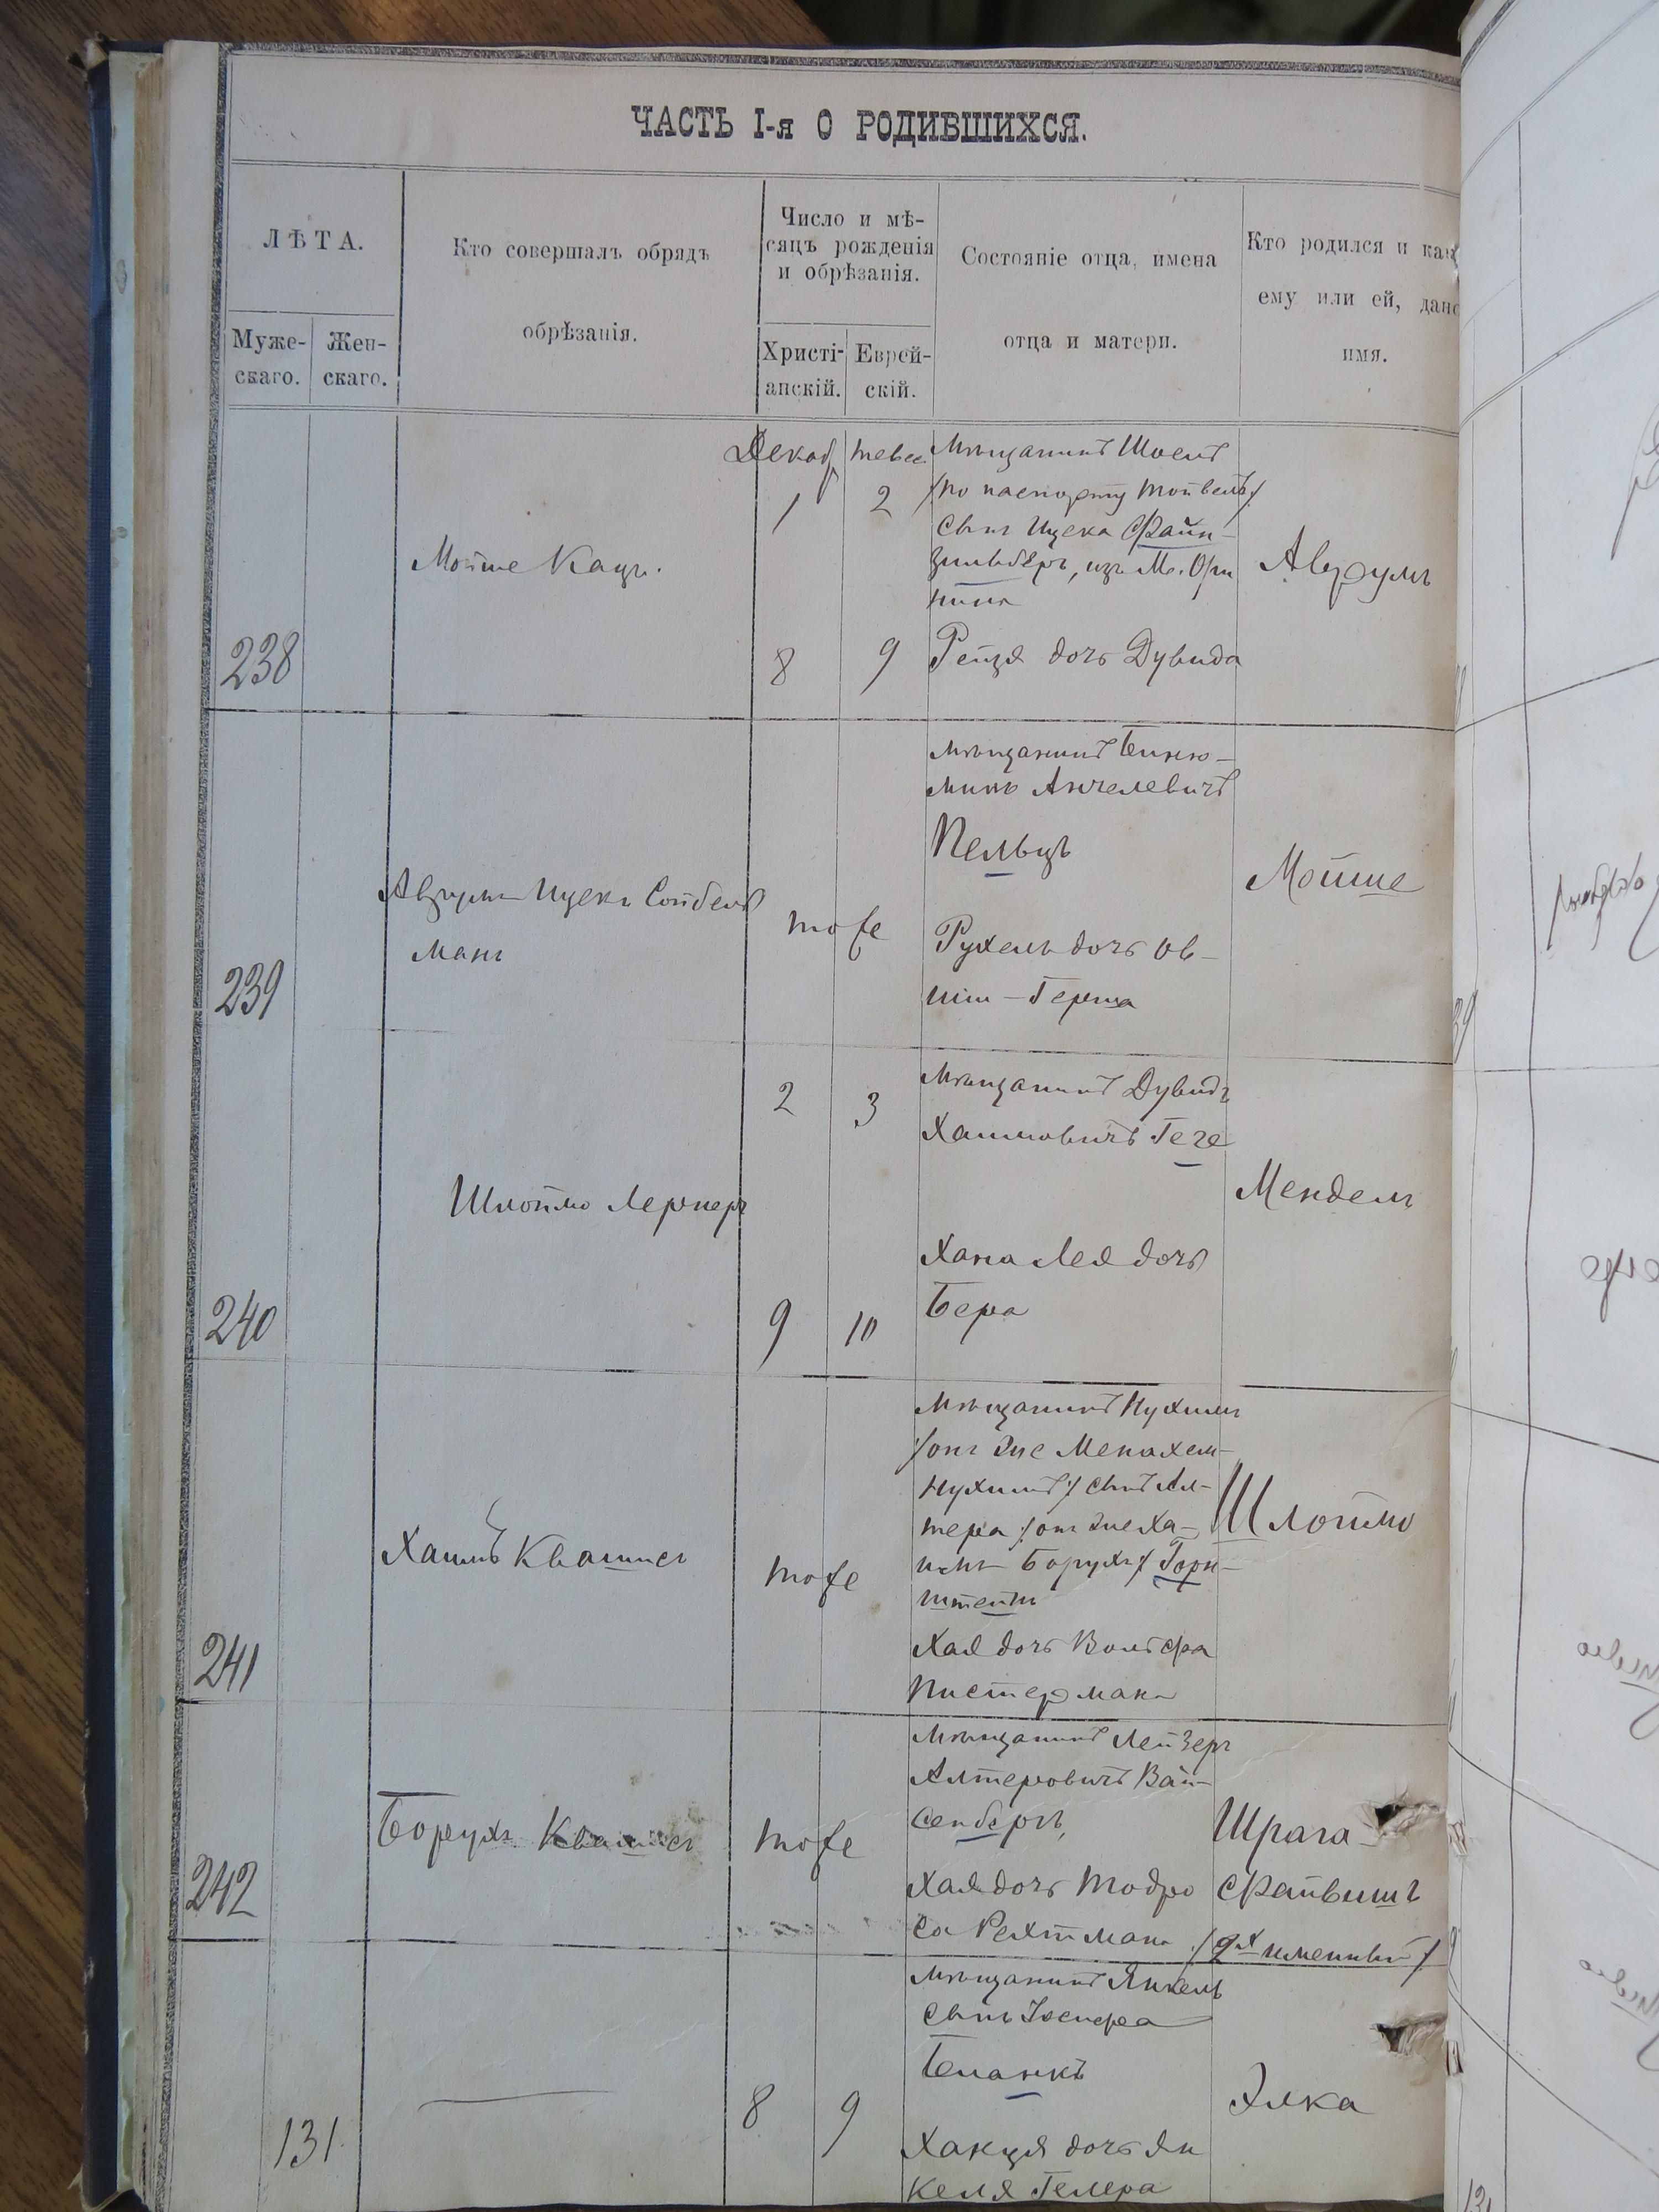 ЧАСТЬ I-я О РОДИВШИХСЯ.
ЛѢТА.
Муже-
скаго.
Жен-
скаго.
Кто совершалъ обрядъ
обрѣзанія.
Число и мѣ-
сяцъ рожденія
и обрѣзанія.
Христі-
анскій.
Еврей-
скій.
Состояніе отца, имена
отца и матери.
Кто родился и как
ему или ей, дано
имя.
238
Мойше Кацъ.
Декаб
1
8
тевес
2
9
Мѣщанинъ
/по паспорту
сынъ Ицека Файн-
зильберъ, изъ М.
Рейзя дочь Дувида
Аврумъ
239
Аврумъ Ицекъ Сойбель
манъ
тоже
мѣщанинъ Биню-
минъ Анчелевичъ
Пельцъ
Рухель дочь Ов-
шія-Герша
Мойше
240
Шлоймо Лернеръ
2
9
3
10
Мѣщанинъ Дувидъ
Хаимовичъ Геге
Хана Лея дочь
Бера
Мендель
241
Хаимъ Квашисъ
тоже
Мѣщанинъ Нухимъ
/онъ же Менахем-
Нухимъ/ сынъ Ал-
тера /онъ же Ха-
имъ Борухъ/ Горн-
штейнъ
Хая дочь Вольфа
Пистермана
Шлоймо
242
Борухъ Квашисъ
тоже
Мѣщанинъ Лейзеръ
Алтеровичъ Вай-
сенбергъ,
Хая дочь Тодро
са Рехтмана
Шрага-
Файвишъ
/2хъ именный/
131.
8
9
Мѣщанинъ Янкель
сынъ Іосифа
Бланкъ
Ханця дочь Ян
келя Гелера
Элка